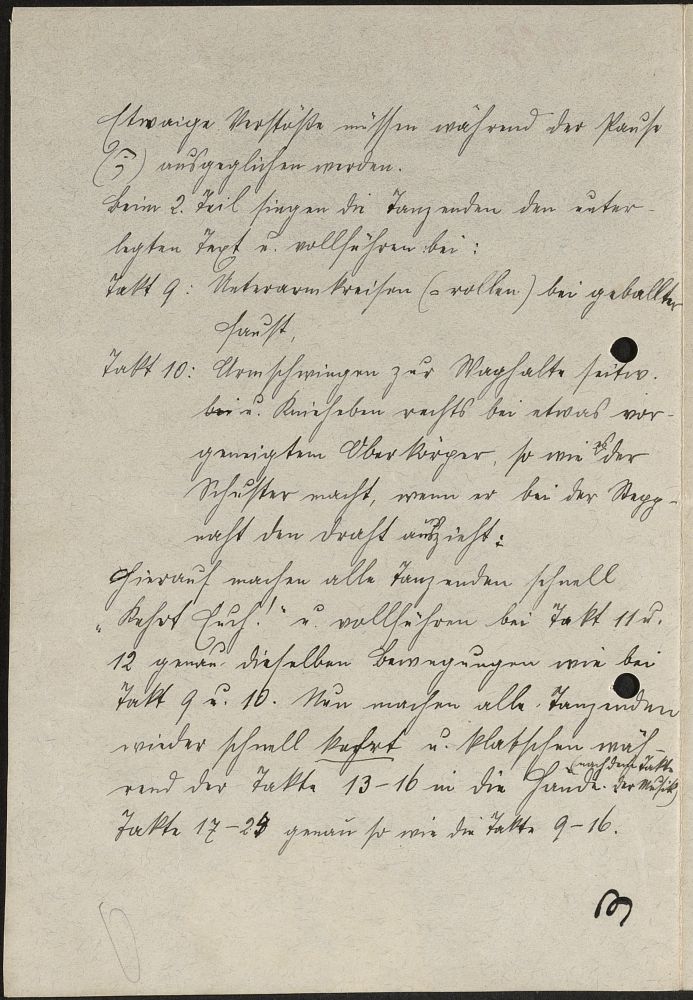 Etwaige Verstöße müssen während der Pause
ausgeglichen werden.
Beim 2. Teil singen die Tanzenden den unter-
legten Text u. vollführen bei:
Takt 9: Unterarmkreisen (= rollen) bei geballter
Faust,
Takt 10: Armschwingen zur Waghalte seitw.
bei u. Knieheben rechts bei etwas vor-
geneigtem Oberkörper, so wie es der
Schuster macht, wenn er bei der Stepp-
naht den Draht auszieht;
Hierauf machen alle Tanzenden schnell
„Kehrt Euch!“ u. vollführen bei Takt 11 u.
12 genau dieselben Bewegungen wie bei
Takt 9 u. 10. Nun machen alle Tanzenden
wieder schnell kehrt u. klatschen wäh-
rend der Takte 13-16 in die Hände. (nach dem Takte der Musik)
Takte 17-24 genau so wie die Takte 9-16.